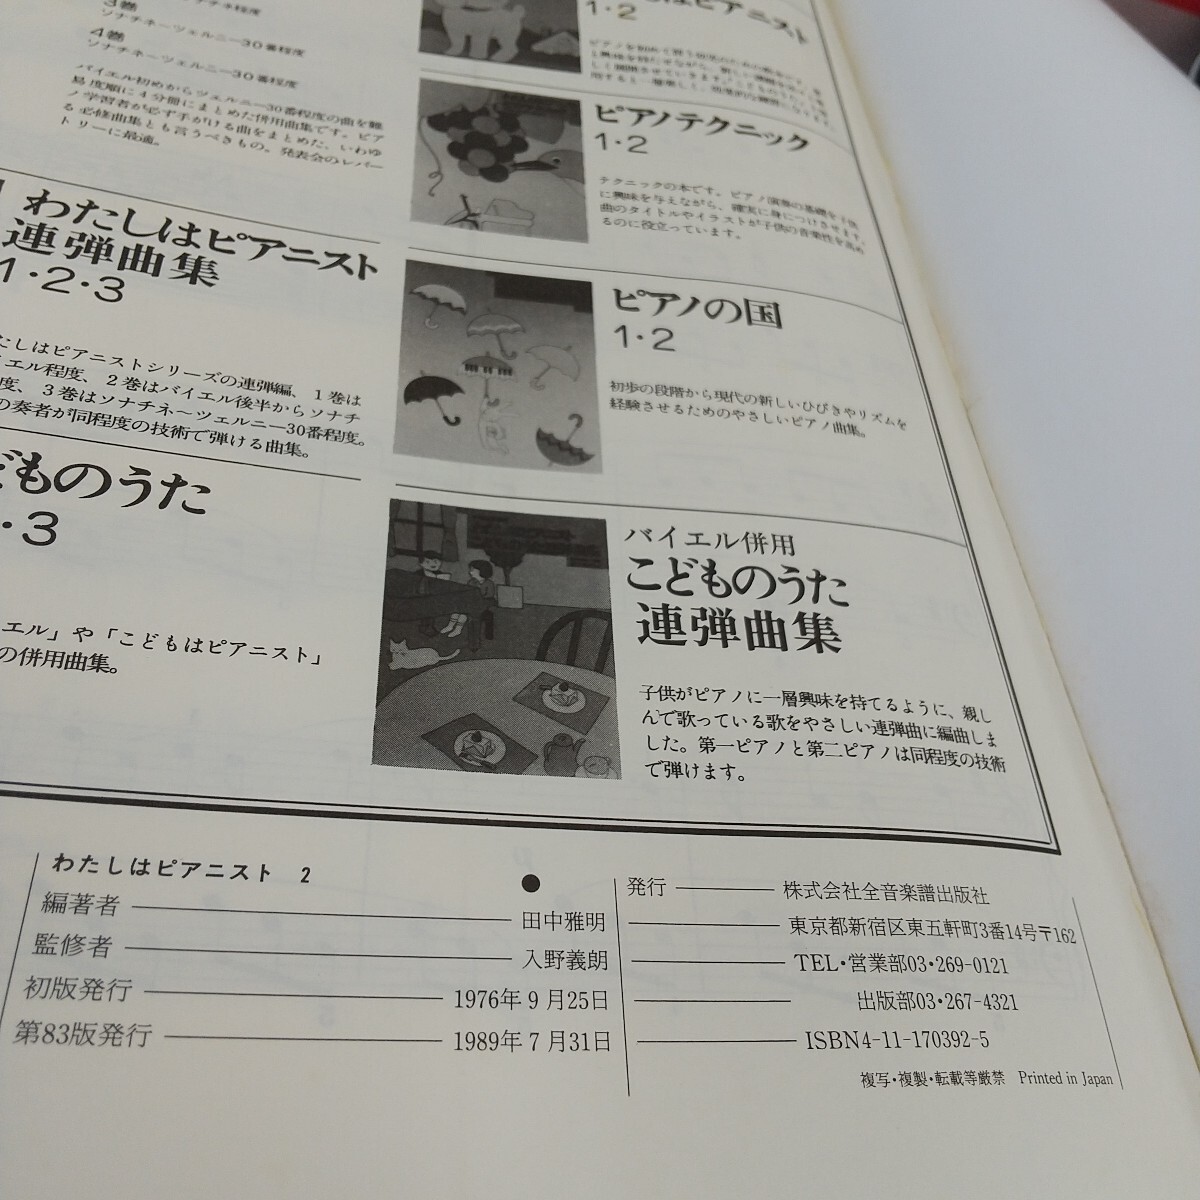 3巻
ソナチネ〜ツェルニー30番程度
4巻
ソナチネ〜ツェルニー30番程度
バイエル初めからツェルニー30番程度の曲を難
易度順に4分冊にまとめた併用曲集です。ピア
ノ学習者が必ず手がける曲をまとめた、いわゆ
る必修曲集とも言うべきもの。発表会のレパー
トリーに最適。
わたしはピアニスト
連弾曲集
1・2・3
たしはピアニストシリーズの連弾編、1巻は
エル程度、2巻はバイエル後半からソナチ
度、3巻はソナチネ〜ツェルニー30番程度。
の奏者が同程度の技術で弾ける曲集。
どものうた
・3
エル」や「こどもはピアニスト」
の併用曲集。
はピアニスト
1・2
ピアノテクニック
1・2
テクニックの本です。ピアノ演奏の基礎を子供
に興味を与えながら、確実に身につけさせます。
曲のタイトルやイラストが子供の音楽性を高め
るのに役立っています。
ピアノの国
1・2
初歩の段階から現代の新しいひびきやリズムを
経験させるためのやさしいピアノ曲集。
バイエル併用
こどものうた
連弾曲集
子供がピアノに一層興味を持てるように、親し
んで歌っている歌をやさしい連弾曲に編曲しま
した。第一ピアノと第二ピアノは同程度の技術
で弾けます。
わたしはピアニスト 2
編著者 田中雅明
監修者 入野義朗
初版発行 1976年9月25日
第83版発行 1989年7月31日
発行 株式会社全音楽譜出版社
東京都新宿区東五軒町3番14号〒162
TEL・営業部03・269-0121
出版部03・267-4321
ISBN4-11-170392-5
複写・複製・転載等厳禁 Printed in Japan